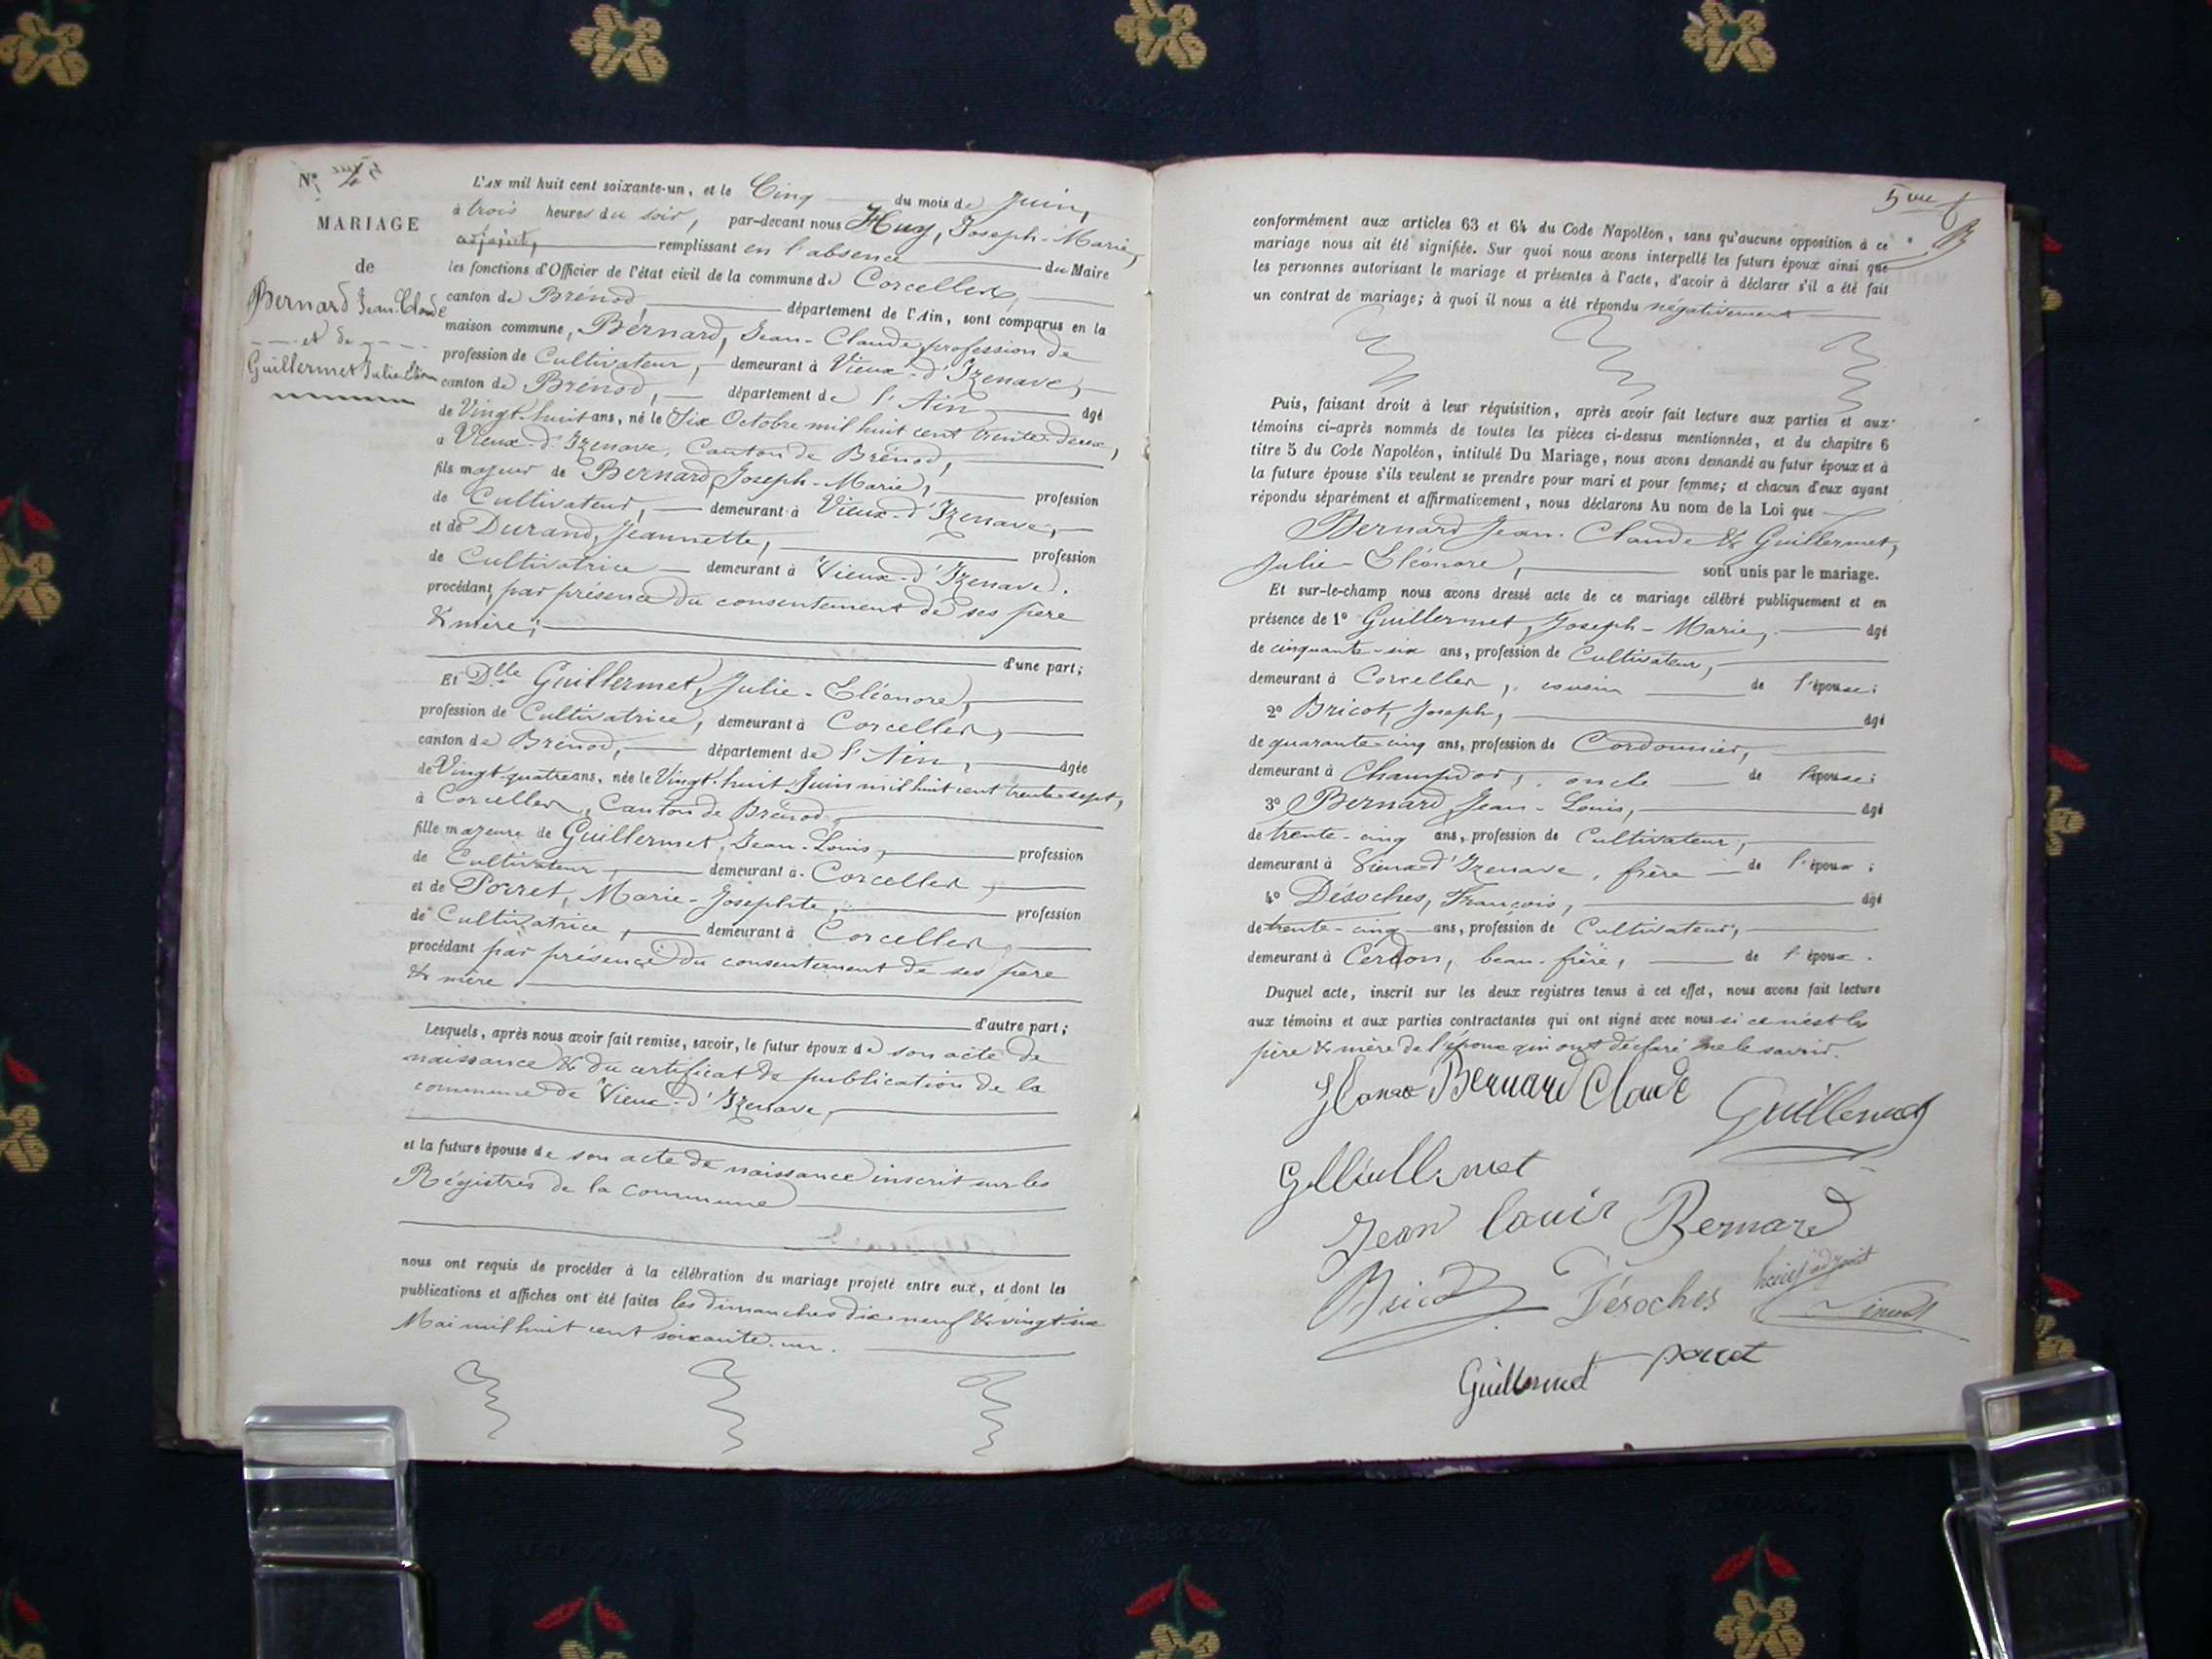 N° 4
MARIAGE
de
Bernard Jean-Claude
et de
Guillermet Julie
L'AN mil huit cent soixante-un, et le Cinq du mois de Juin,
à trois heures du soir, par-devant nous Huy, Joseph-Marie,
adjoint, remplissant en l'absence du Maire
les fonctions d'Officier de l'état civil de la commune de Corcelles,
canton de Brénod, département de l'Ain, sont comparus en la
maison commune, Bernard, Jean-Claude, profession de
profession de Cultivateur, demeurant à Vieux-d'Izenave,
canton de Brénod, département de l'Ain âgé
de Vingt-huit ans, né le Six Octobre mil huit cent trente-deux,
à Vieux-d'Izenave, Canton de Brénod,
fils majeur de Bernard, Joseph-Marie, profession
de Cultivateur, demeurant à Vieux-d'Izenave,
et de Durand, Jeannette, profession
de Cultivatrice demeurant à Vieux-d'Izenave.
procédant par présence du consentement de ses père
& mère;
d'une part;
Et Dlle Guillermet, Julie-Eléonore,
profession de Cultivatrice, demeurant à Corcelles,
canton de Brénod, département de l'Ain, âgée
de Vingt-quatre ans, née le Vingt-huit Juin mil huit cent trente-sept,
à Corcelles, Canton de Brénod,
fille majeure de Guillermet, Jean-Louis, profession
de Cultivateur, demeurant à Corcelles,
et de Porret, Marie-Josephte, profession
de Cultivatrice, demeurant à Corcelles,
procédant par présence du consentement de ses père
& mère
d'autre part;
Lesquels, après nous avoir fait remise, savoir, le futur époux de son acte de
naissance & du certificat de publication de la
commune de Vieux-d'Izenave,
et la future épouse de son acte de naissance inscrit sur les
Régistres de la Commune
nous ont requis de procéder à la célébration du mariage projeté entre eux, et dont les
publications et affiches ont été faites les dimanches dix-neuf & vingt-six
Mai mil huit cent soixante-un.
5me
conformément aux articles 63 et 64 du Code Napoléon, sans qu'aucune opposition à ce
mariage nous ait été signifiée. Sur quoi nous avons interpellé les futurs époux ainsi que
les personnes autorisant le mariage et présentes à l'acte, d'avoir à déclarer s'il a été fait
un contrat de mariage; à quoi il nous a été répondu négativement
Puis, faisant droit à leur réquisition, après avoir fait lecture aux parties et aux
témoins ci-après nommés de toutes les pièces ci-dessus mentionnées, et du chapitre 6
titre 5 du Code Napoléon, intitulé Du Mariage, nous avons demandé au futur époux et à
la future épouse s'ils veulent se prendre pour mari et pour femme; et chacun d'eux ayant
répondu séparément et affirmativement, nous déclarons Au nom de la Loi que
Bernard Jean-Claude & Guillermet,
Julie-Eléonore, sont unis par le mariage.
Et sur-le-champ nous avons dressé acte de ce mariage célébré publiquement et en
présence de 1° Guillermet, Joseph-Marie, âgé
de cinquante-six ans, profession de Cultivateur,
demeurant à Corcelles, cousin de l'épouse;
2° Bricot, Joseph, âgé
de quarante-cinq ans, profession de Cordonnier,
demeurant à Champdor, oncle de l'épouse;
3° Bernard, Jean-Louis, âgé
de trente-cinq ans, profession de Cultivateur,
demeurant à Vieux-d'Izenave, frère de l'époux;
4° Désoches, François, âgé
de trente-cinq ans, profession de Cultivateur,
demeurant à Cerdon, beau-frère, de l'époux.
Duquel acte, inscrit sur les deux registres tenus à cet effet, nous avons fait lecture
aux témoins et aux parties contractantes qui ont signé avec nous si ce n'est les
père & mère de l'époux qui ont déclaré ne le savoir.
Bernard Claude Guillermet
Jean Louis Bernard
Bricot Désoches adjoint
Guillermet porret